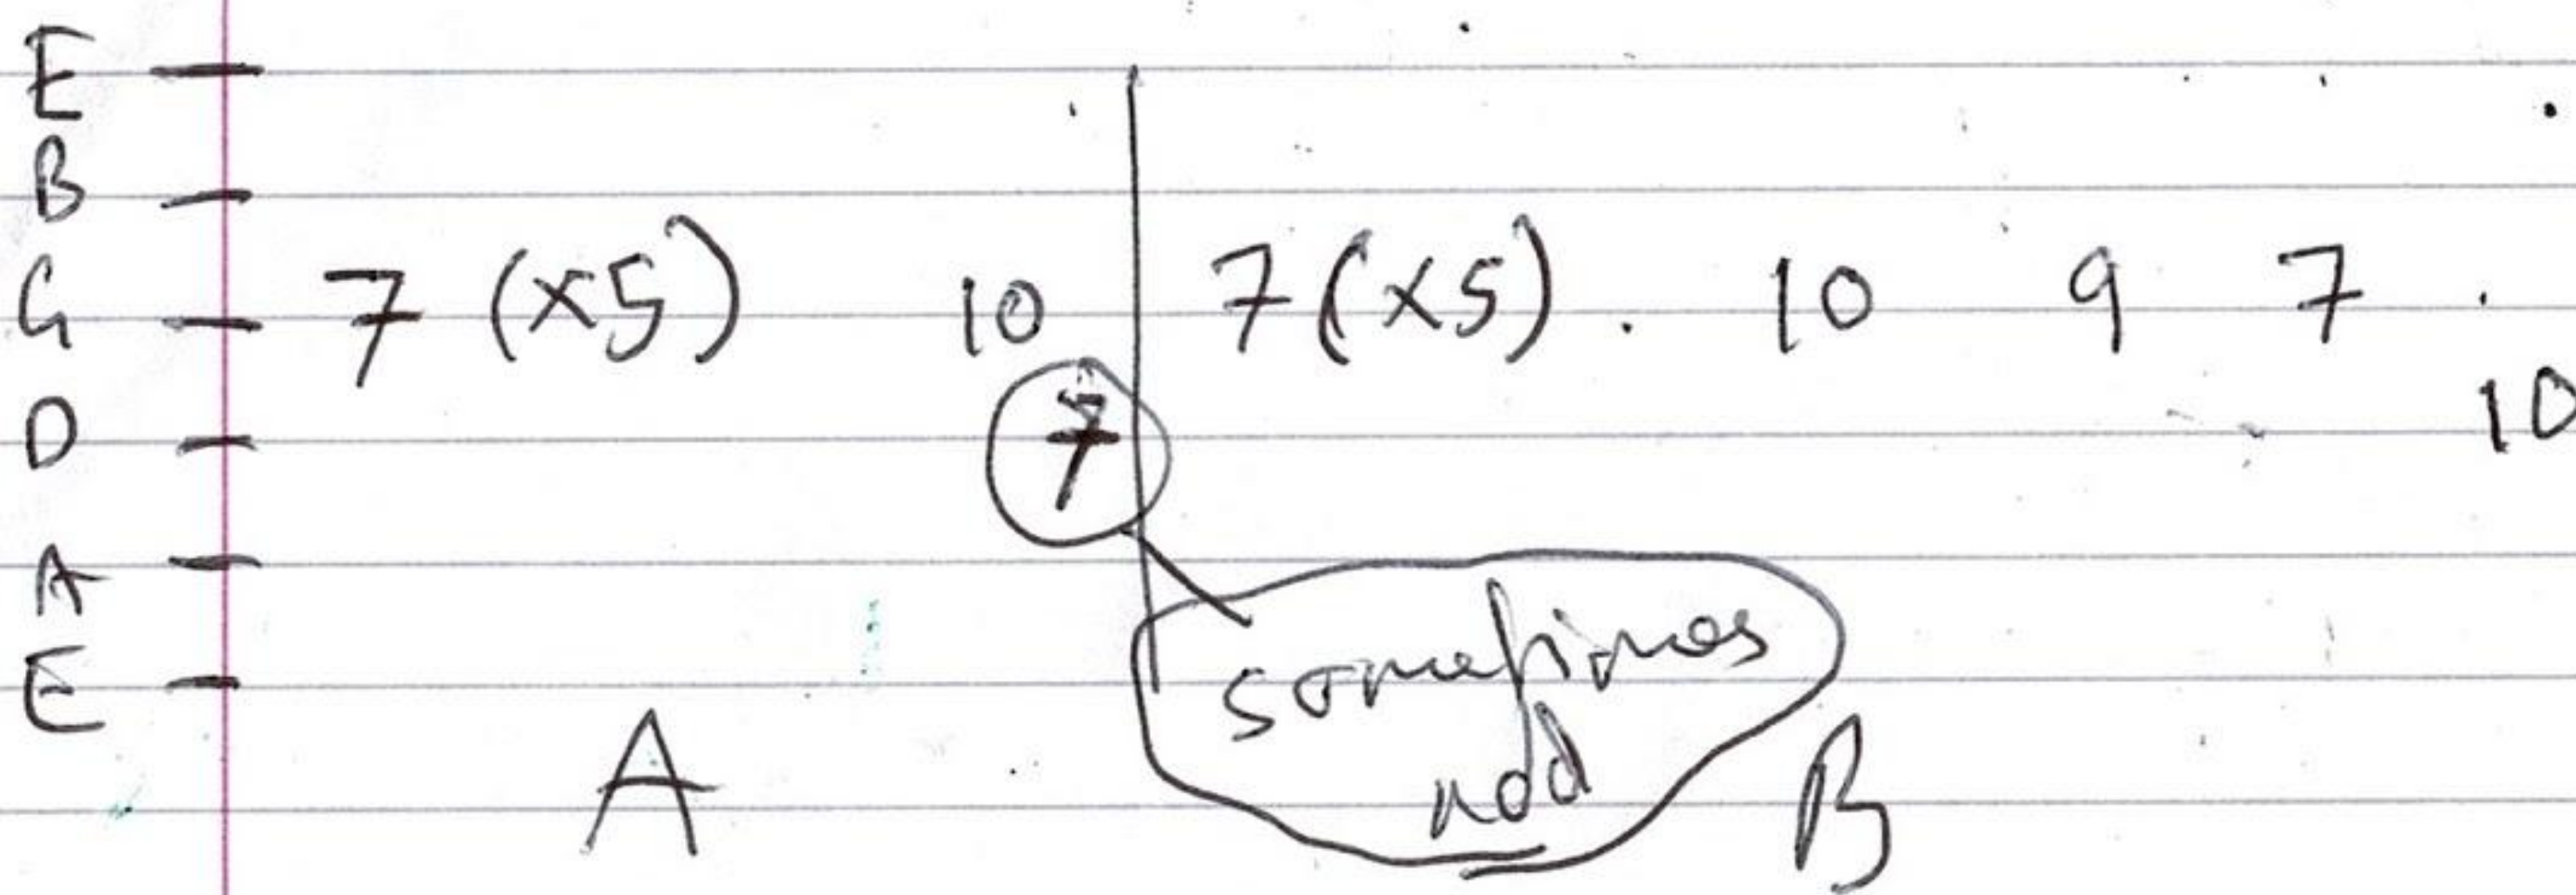 E
B
G 7 (x5) 10 7 (x5) . 10 9 7 .
D 7 10
A
E
sometimes
A B